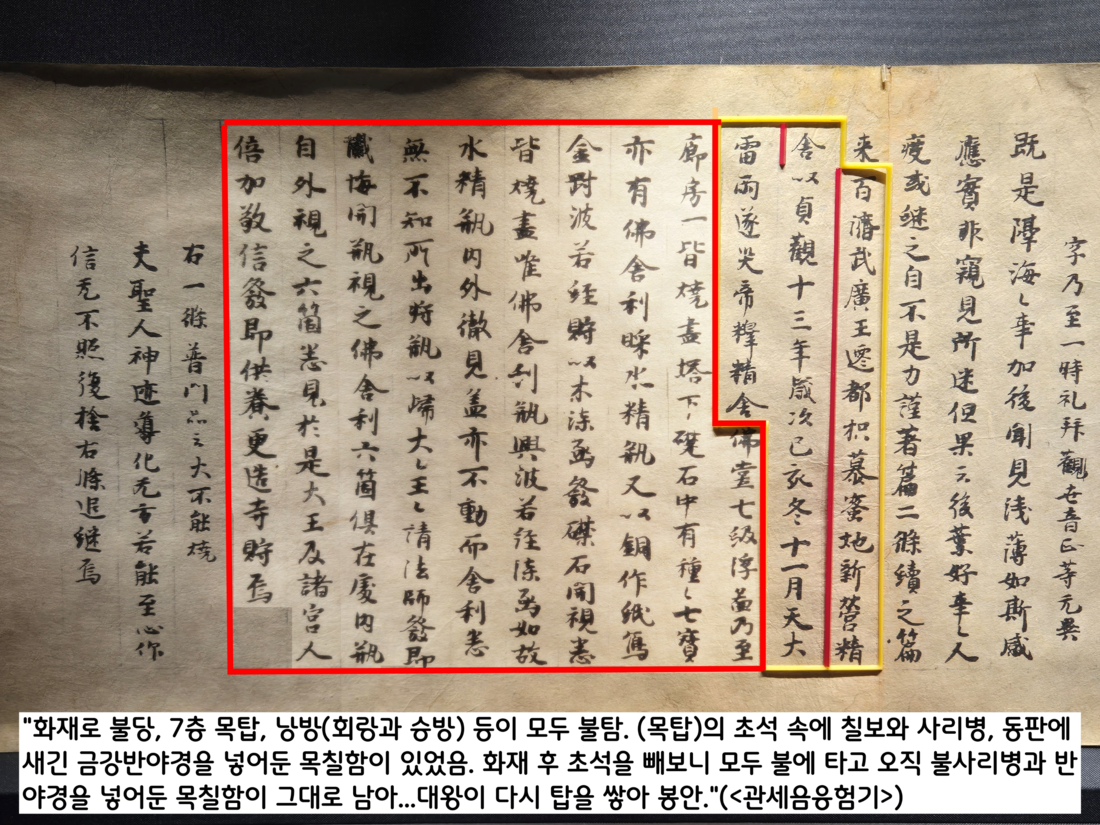 字乃至一時礼拜觀世音正等无異
既是隣海〻車加後聞見浅薄如斯感
應實非窺見所迷但果云後葉好事〻人
疲或継之自不是力謹著篇二條續之篇
来百濟武廣王遷都枳慕蜜地新營精
舎以貞觀十三年歳次己亥冬十一月天大
雷雨遂灾帝釋精舎佛堂七級浮啚乃至
廊房一皆燒盡塔下〻礎石中有種〻七寶
亦有佛舎利睬水精瓶又以銅作紙寫
金剛波若經貯以木漆函發礎石開視悉
皆燒盡唯佛舎利瓶與波若經漆函如故
水精瓶內外徹見盖亦不動而舎利悉
無不知所出將瓶以歸大〻王〻請法師發即
懺悔開瓶視之佛舎利六箇俱在處內瓶
自外視之六箇悉見於是大王及諸宮人
倍加敬信發即供養更造寺貯焉
右一條普門品云大不能燒
夫聖人神迹導化无方若能至心作
信无不照復捨右條追継焉
"화재로 불당, 7층 목탑, 낭방(회랑과 승방) 등이 모두 불탐. (목탑)의 초석 속에 칠보와 사리병, 동판에
새긴 금강반야경을 넣어둔 목칠함이 있었음. 화재 후 초석을 빼보니 모두 불에 타고 오직 불사리병과 반
야경을 넣어둔 목칠함이 그대로 남아...대왕이 다시 탑을 쌓아 봉안."(<관세음응험기>)